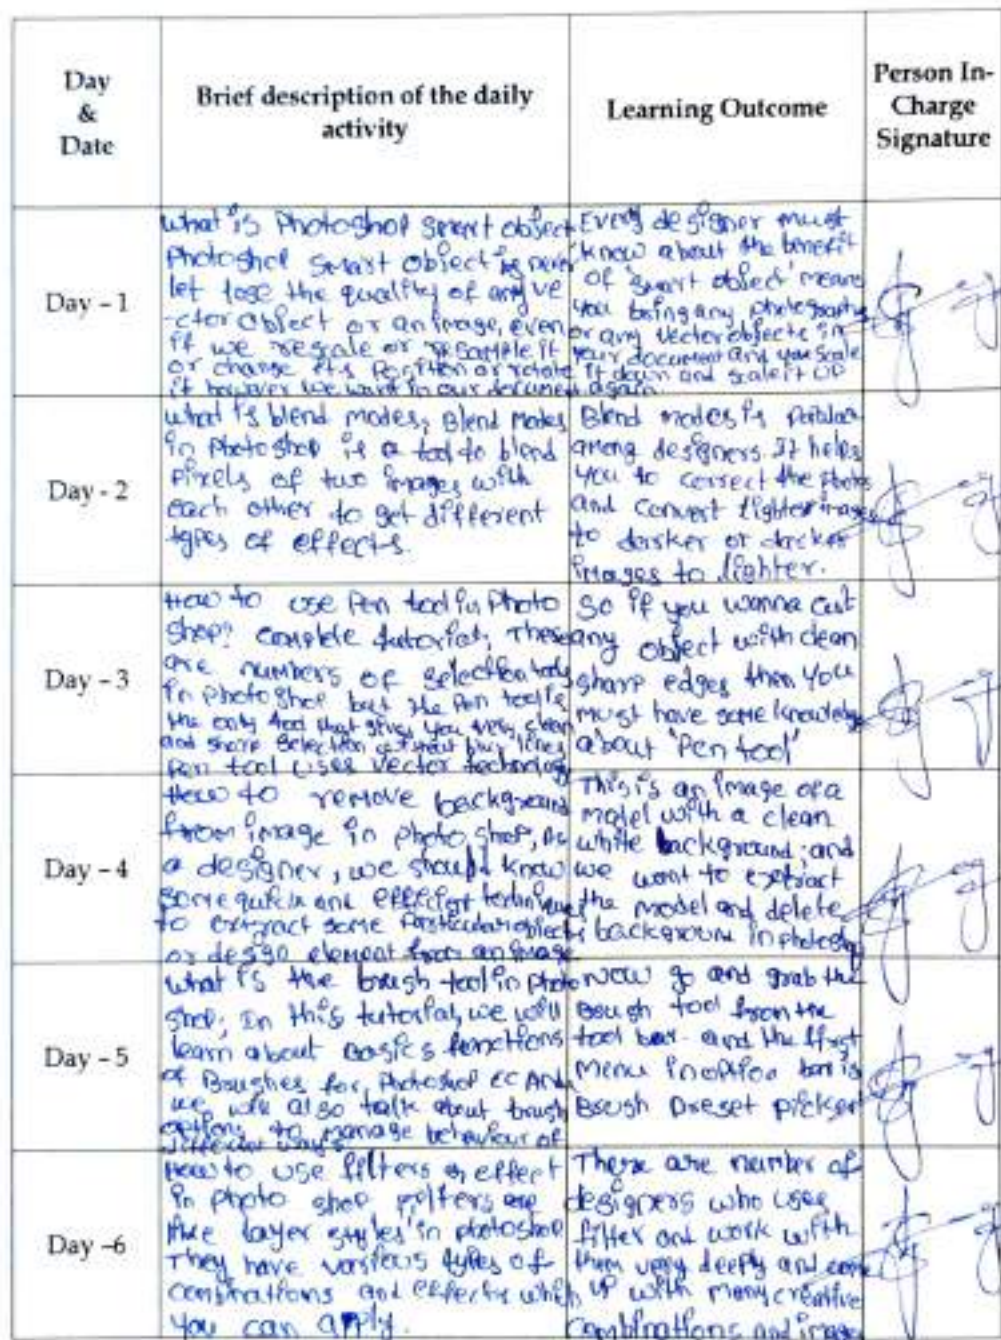 Day
&
Date
Brief description of the daily
activity
Learning Outcome
Person In-
Charge
Signature
Day - 1
What is Photoshop smart object
Photoshop smart object is never
let lose the quality of any ve
-ctor object or an image, even
if we rescale or resample it
or change its Position or rotate
it however we want in our document
Every designer must
know about the benefit
of 'smart object' means
you bring any photography
or any vector objects in
your document and you scale
it down and scale it up
again.
Day - 2
what is blend modes; Blend modes
in Photoshop is a tool to blend
pixels of two images with
each other to get different
types of effects.
Blend modes is
among designers. It helps
you to correct the photos
and convert lighter images
to darker or darker
images to lighter.
Day - 3
How to use Pen tool in Photo
shop? complete tutorial; These
are numbers of selection tools
in photoshop but the Pen tool is
the only tool that gives you very clean
and sharp selection without blur lines
Pen tool uses vector technology
So if you wanna cut
any object with clean
sharp edges then you
must have some knowledge
about 'Pen tool'
Day - 4
How to remove background
from image in photo shop, As
a designer, we should know
some quick and efficient techniques
to extract some Particular objects
or design element from an image
This is an image of a
model with a clean
white background; and
we want to extract
the model and delete
background in photoshop
Day - 5
what is the brush tool in photo
shop; In this tutorial, we will
learn about basics functions
of Brushes for, Photoshop CC And
we will also talk about brush
options to manage behaviour of
different ways
now go and grab the
Brush tool from the
tool bar. and the first
menu in option bar is
Brush Preset picker
Day -6
How to use filters & effect
in photo shop filters are
like layer styles in photoshop
They have various types of
combinations and effects which
you can apply.
There are number of
designers who use
filter and work with
them very deeply and come
up with many creative
combinations and images